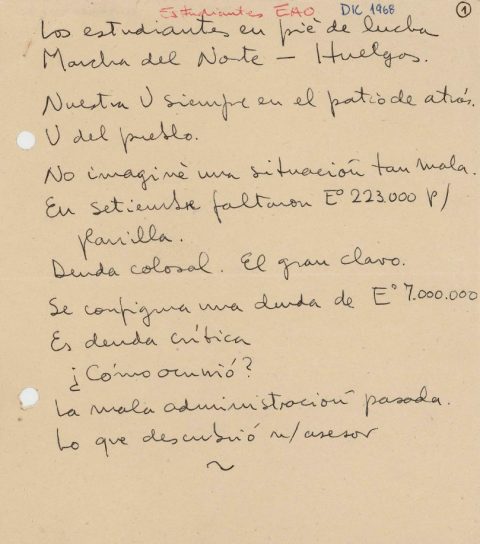 Estudiantes EAO DIC 1968 1
Los estudiantes en piè de lucha
Marcha del Norte – Huelgas.
Nuestra U siempre en el patio de atrás.
U del pueblo.
No imaginè una situación tan mala.
En setiembre faltaron Eº 223.000 p/
planilla.
Deuda colosal. El gran clavo.
Se configura una deuda de Eº 7.000.000
Es deuda crítica
¿Cómo ocurrió?
La mala administración pasada.
Lo que descubrió n/asesor
~